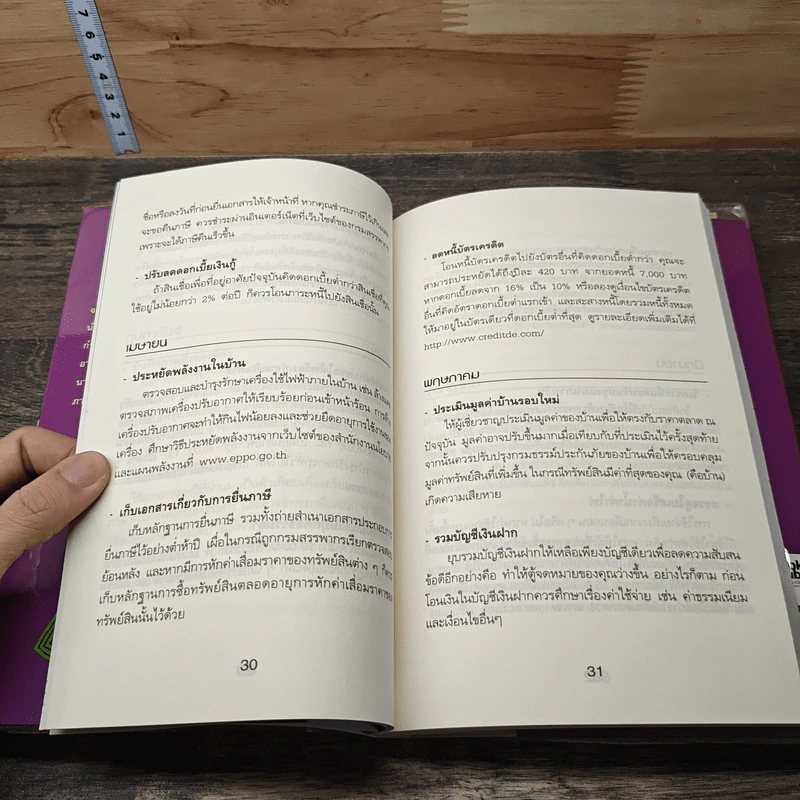 ชื่อหรือลงวันที่ก่อนยื่นเอกสารให้เจ้าหน้าที่ หากคุณชำระภาษีไว้เกินและ
จะขอคืนภาษี ควรชำระผ่านอินเตอร์เน็ตที่เว็บไซต์ของกรมสรรพากร
เพราะจะได้ภาษีคืนเร็วขึ้น
- ปรับลดดอกเบี้ยเงินกู้
ถ้าสินเชื่อเพื่อที่อยู่อาศัยปัจจุบันคิดดอกเบี้ยต่ำกว่าสินเชื่อที่คุณ
ใช้อยู่ไม่น้อยกว่า 2% ต่อปี ก็ควรโอนภาระหนี้ไปยังสินเชื่อนั้น
เมษายน
- ประหยัดพลังงานในบ้าน
ตรวจสอบและบำรุงรักษาเครื่องใช้ไฟฟ้าภายในบ้าน เช่น ล้างและ
ตรวจสภาพเครื่องปรับอากาศให้เรียบร้อยก่อนเข้าหน้าร้อน การล้าง
เครื่องปรับอากาศจะทำให้กินไฟน้อยลงและช่วยยืดอายุการใช้งานของ
เครื่อง ศึกษาวิธีประหยัดพลังงานจากเว็บไซต์ของสำนักงานนโยบาย
และแผนพลังงานที่ www.eppo.go.th
- เก็บเอกสารเกี่ยวกับการยื่นภาษี
เก็บหลักฐานการยื่นภาษี รวมทั้งถ่ายสำเนาเอกสารประกอบการ
ยื่นภาษีไว้อย่างต่ำห้าปี เผื่อในกรณีถูกกรมสรรพากรเรียกตรวจสอบ
ย้อนหลัง และหากมีการหักค่าเสื่อมราคาของทรัพย์สินต่าง ๆ ก็ควร
เก็บหลักฐานการซื้อทรัพย์สินตลอดอายุการหักค่าเสื่อมราคาของ
ทรัพย์สินนั้นไว้ด้วย
30
- ลดหนี้บัตรเครดิต
โอนหนี้บัตรเครดิตไปยังบัตรอื่นที่คิดดอกเบี้ยต่ำกว่า คุณจะ
สามารถประหยัดได้ถึงปีละ 420 บาท จากยอดหนี้ 7,000 บาท
หากดอกเบี้ยลดจาก 16% เป็น 10% หรือลองดูเงื่อนไขบัตรเครดิต
อื่นที่คิดอัตราดอกเบี้ยต่ำแรกเข้า และสะสางหนี้โดยรวมหนี้ทั้งหมด
ให้มาอยู่ในบัตรเดียวที่ดอกเบี้ยต่ำที่สุด ดูรายละเอียดเพิ่มเติมได้ที่
http://www.creditde.com/
พฤษภาคม
- ประเมินมูลค่าบ้านรอบใหม่
ให้ผู้เชี่ยวชาญประเมินมูลค่าของบ้านเพื่อให้ตรงกับราคาตลาด ณ
ปัจจุบัน มูลค่าอาจปรับขึ้นมากเมื่อเทียบกับที่ประเมินไว้ครั้งสุดท้าย
จากนั้นควรปรับปรุงกรมธรรม์ประกันภัยของบ้านเพื่อให้ครอบคลุม
มูลค่าทรัพย์สินที่เพิ่มขึ้น ในกรณีทรัพย์สินมีค่าที่สุดของคุณ (คือบ้าน)
เกิดความเสียหาย
- รวมบัญชีเงินฝาก
ยุบรวมบัญชีเงินฝากให้เหลือเพียงบัญชีเดียวเพื่อลดความสับสน
ข้อดีอีกอย่างคือ ทำให้ตู้จดหมายของคุณว่างขึ้น อย่างไรก็ตาม ก่อน
โอนเงินในบัญชีเงินฝากควรศึกษาเรื่องค่าใช้จ่าย เช่น ค่าธรรมเนียม
และเงื่อนไขอื่นๆ
31
7
6
5
4
3
2
1